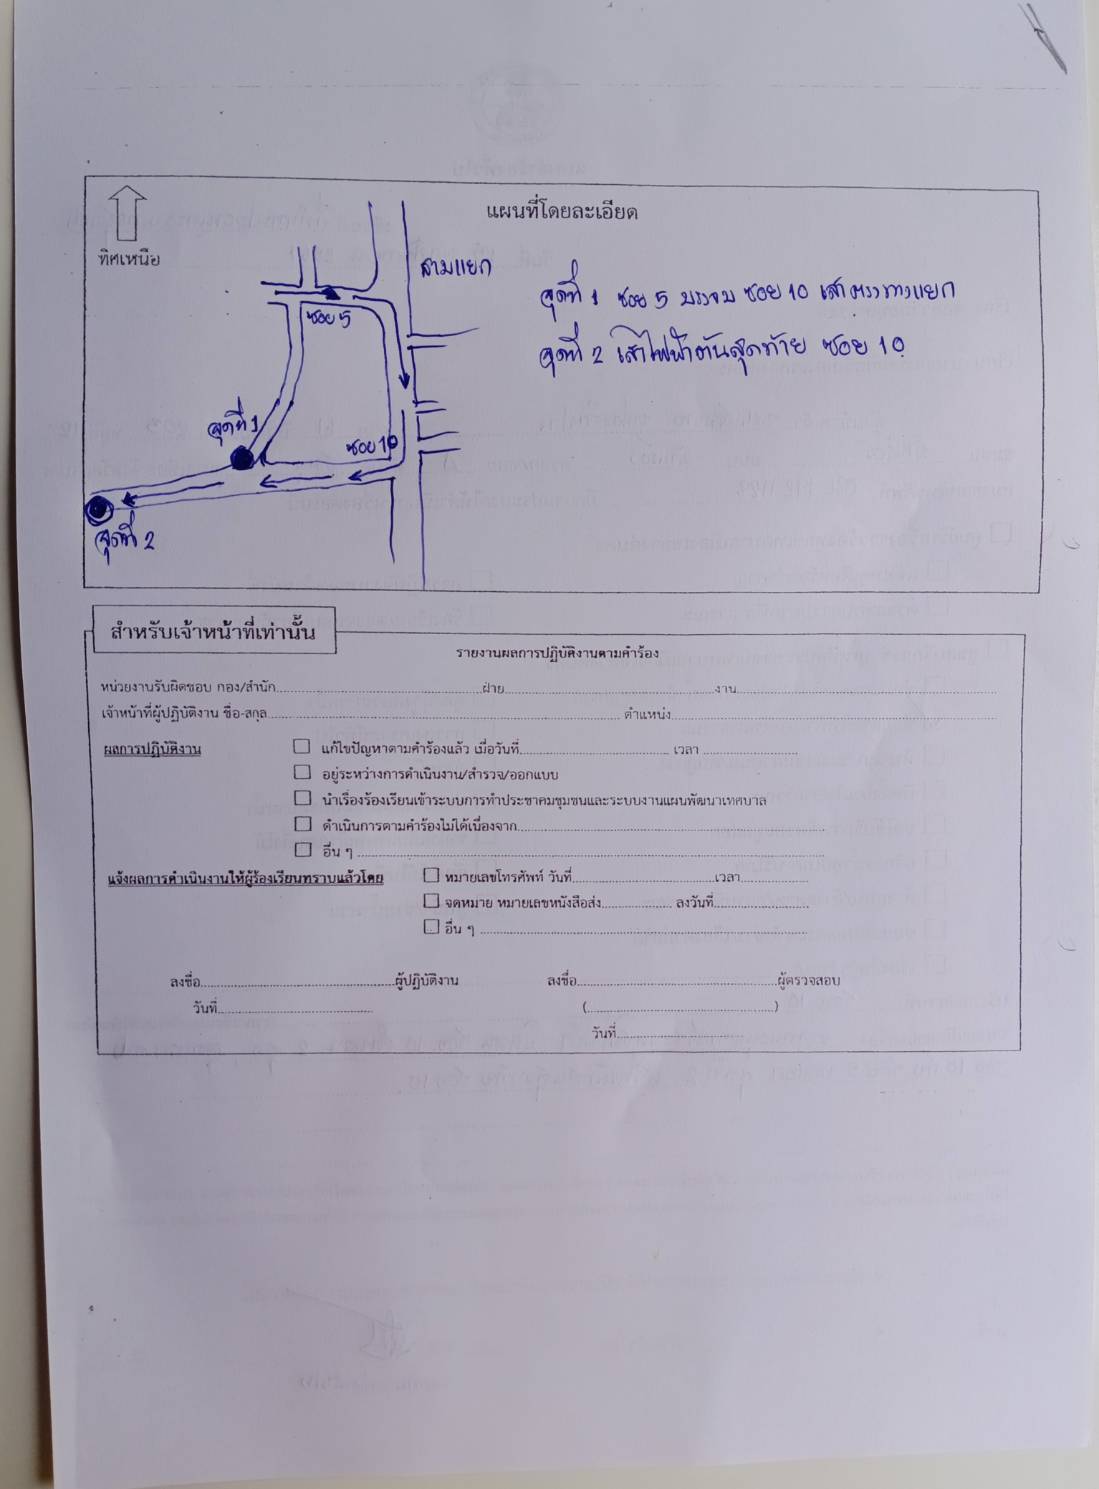 แผนที่โดยละเอียด
ทิศเหนือ
สามแยก
จุดที่ 1 ซอย 5 บรรจบ ซอย 10 เสาตรงทางแยก
ซอย 5
จุดที่ 2 เสาไฟฟ้าต้นสุดท้าย ซอย 10
จุดที่ 1
ซอย 10
จุดที่ 2
สำหรับเจ้าหน้าที่เท่านั้น
รายงานผลการปฏิบัติงานตามคำร้อง
หน่วยงานรับผิดชอบ กอง/สำนัก ฝ่าย งาน
เจ้าหน้าที่ผู้ปฏิบัติงาน ชื่อ-สกุล ตำแหน่ง
ผลการปฏิบัติงาน แก้ไขปัญหาตามคำร้องแล้ว เมื่อวันที่ เวลา
อยู่ระหว่างการดำเนินงาน/สำรวจ/ออกแบบ
นำเรื่องร้องเรียนเข้าระบบการทำประชาคมชุมชนและระบบงานแผนพัฒนาเทศบาล
ดำเนินการตามคำร้องไม่ได้เนื่องจาก
อื่น ๆ
แจ้งผลการดำเนินงานให้ผู้ร้องเรียนทราบแล้วโดย หมายเลขโทรศัพท์ วันที่ เวลา
จดหมาย หมายเลขหนังสือส่ง ลงวันที่
อื่น ๆ
ลงชื่อ ผู้ปฏิบัติงาน ลงชื่อ ผู้ตรวจสอบ
วันที่ ( )
วันที่